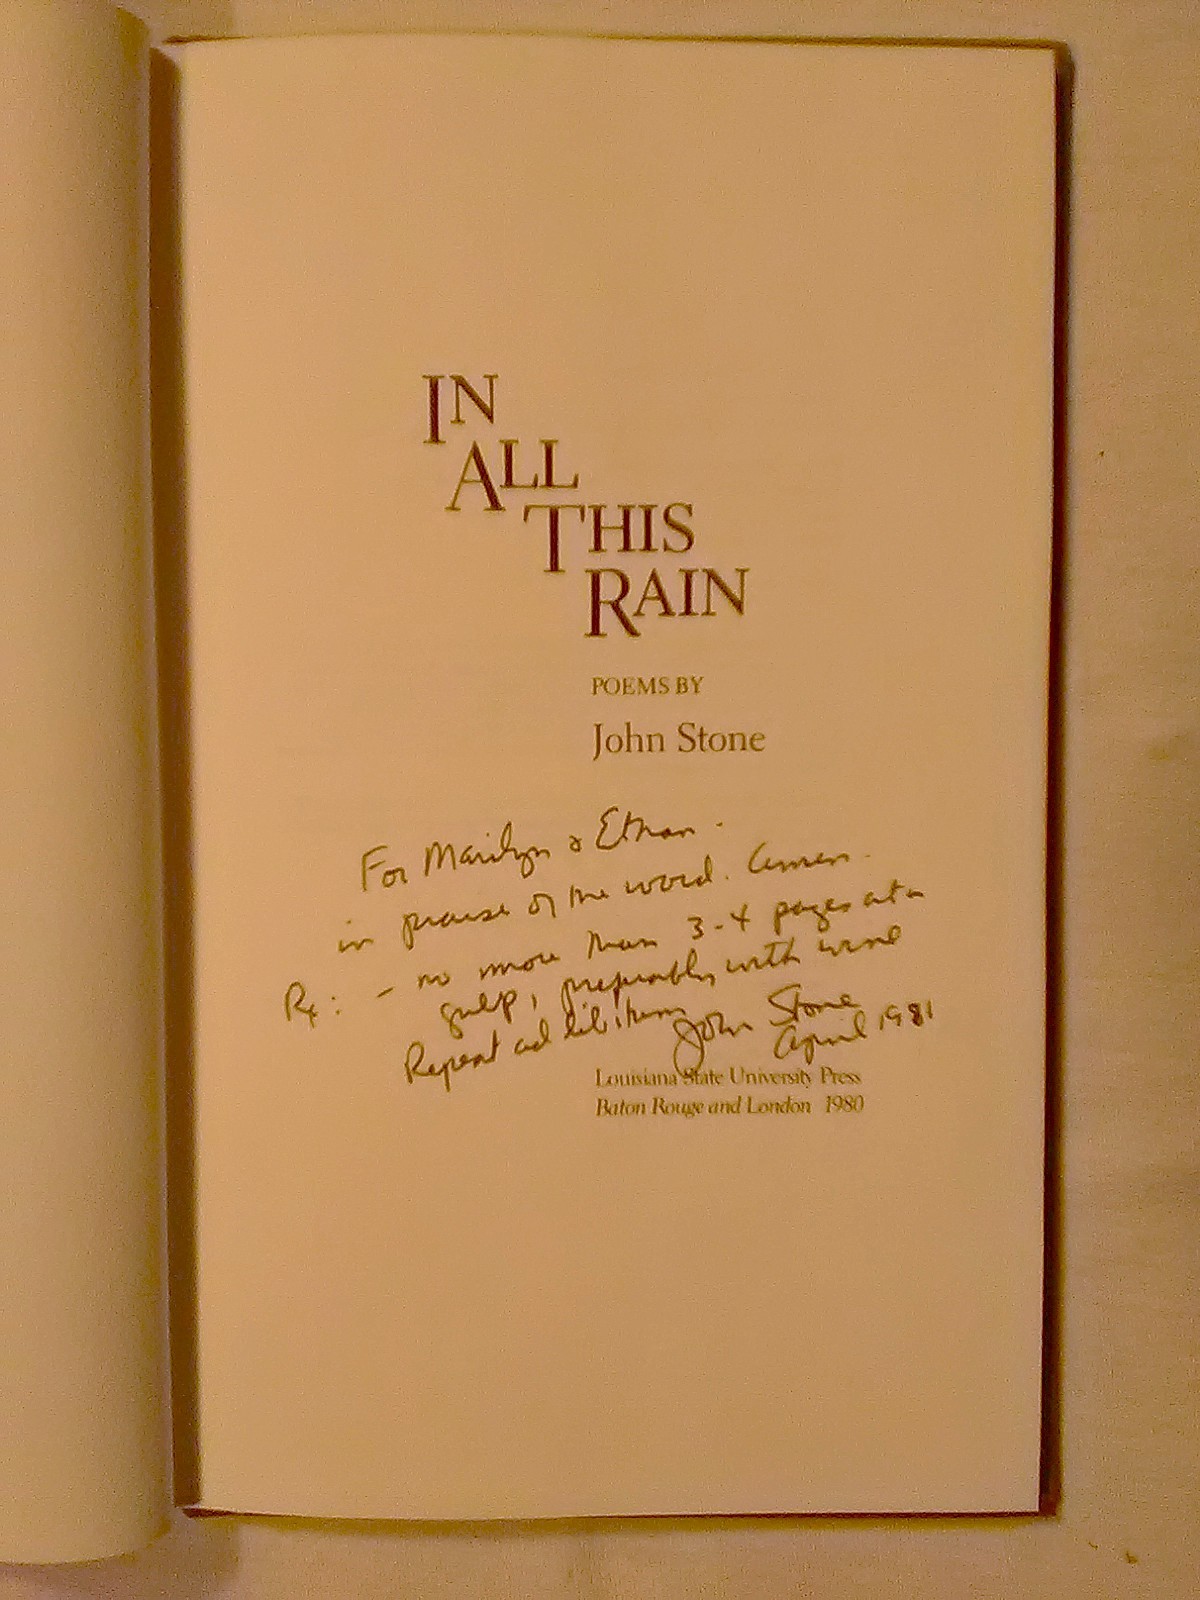 IN
ALL
THIS
RAIN
POEMS BY
John Stone
For Marilyn & Ethan -
in praise of the word. Amen.
Rx: - no more than 3-4 pages at a
gulp, preferably with wine
Repeat ad libitum
John Stone
April 1981
Louisiana State University Press
Baton Rouge and London 1980